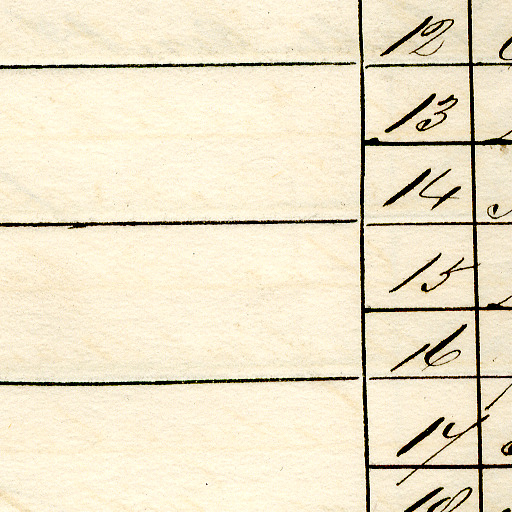 12
13
14
15
16
17
18